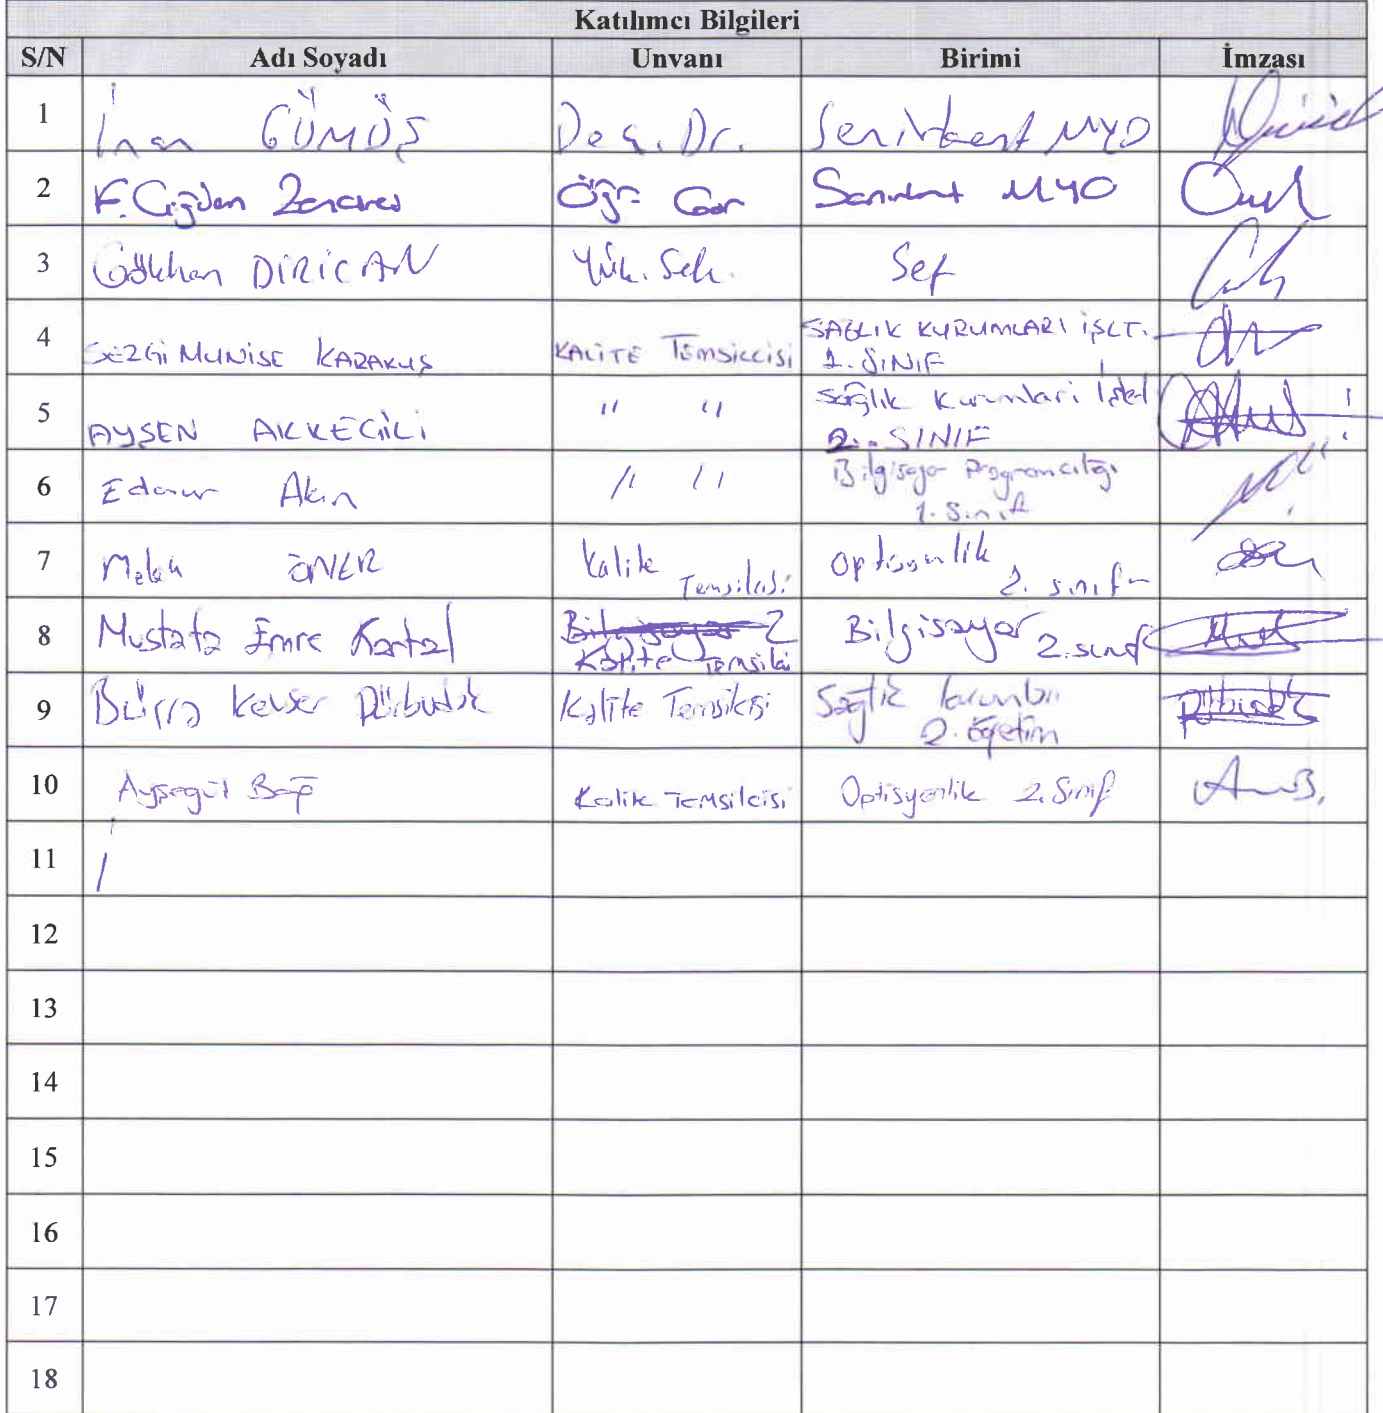 Katılımcı Bilgileri
S/N Adı Soyadı Unvanı Birimi İmzası
1 İnan GÜMÜŞ Doç. Dr. Senirkent MYO
2 F. Çiğdem Öğr. Gör. Senirkent MYO
3 Gökhan DİRİCAN Yük. Sek. Şef
4 SEZGİ MUNİSE KARAKUŞ KALİTE TEMSİLCİSİ SAĞLIK KURUMLARI İŞLT.
1. SINIF
5 AYŞEN AKKEÇİLİ " " Sağlık Kurumları İşlet
2. SINIF
6 Edanur Akın " " Bilgisayar Programcılığı
1. Sınıf
7 Melek ÖNER Kalite Temsilcisi Optisyenlik 2. sınıf
8 Mustafa Emre Kartal Bilgisayar 2 Bilgisayar 2. sınıf
Kalite Temsilci
9 Büşra Kevser Kalite Temsilcisi Sağlık kurumları
2. öğretim
10 Ayşegül Kalite Temsilcisi Optisyenlik 2. Sınıf
11
12
13
14
15
16
17
18